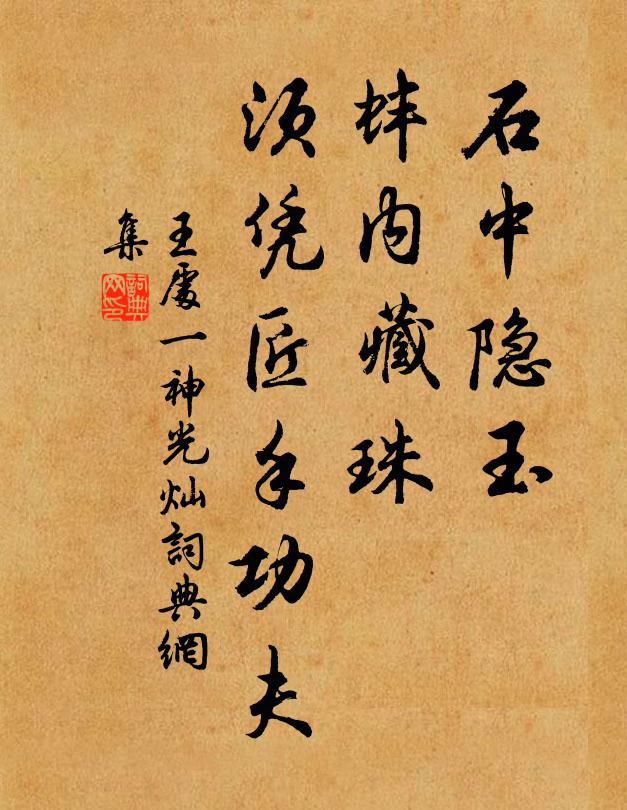 石中隐玉
蚌内藏珠
须凭匠手功夫
王處一神光灿詞典網
集
詞典
网印